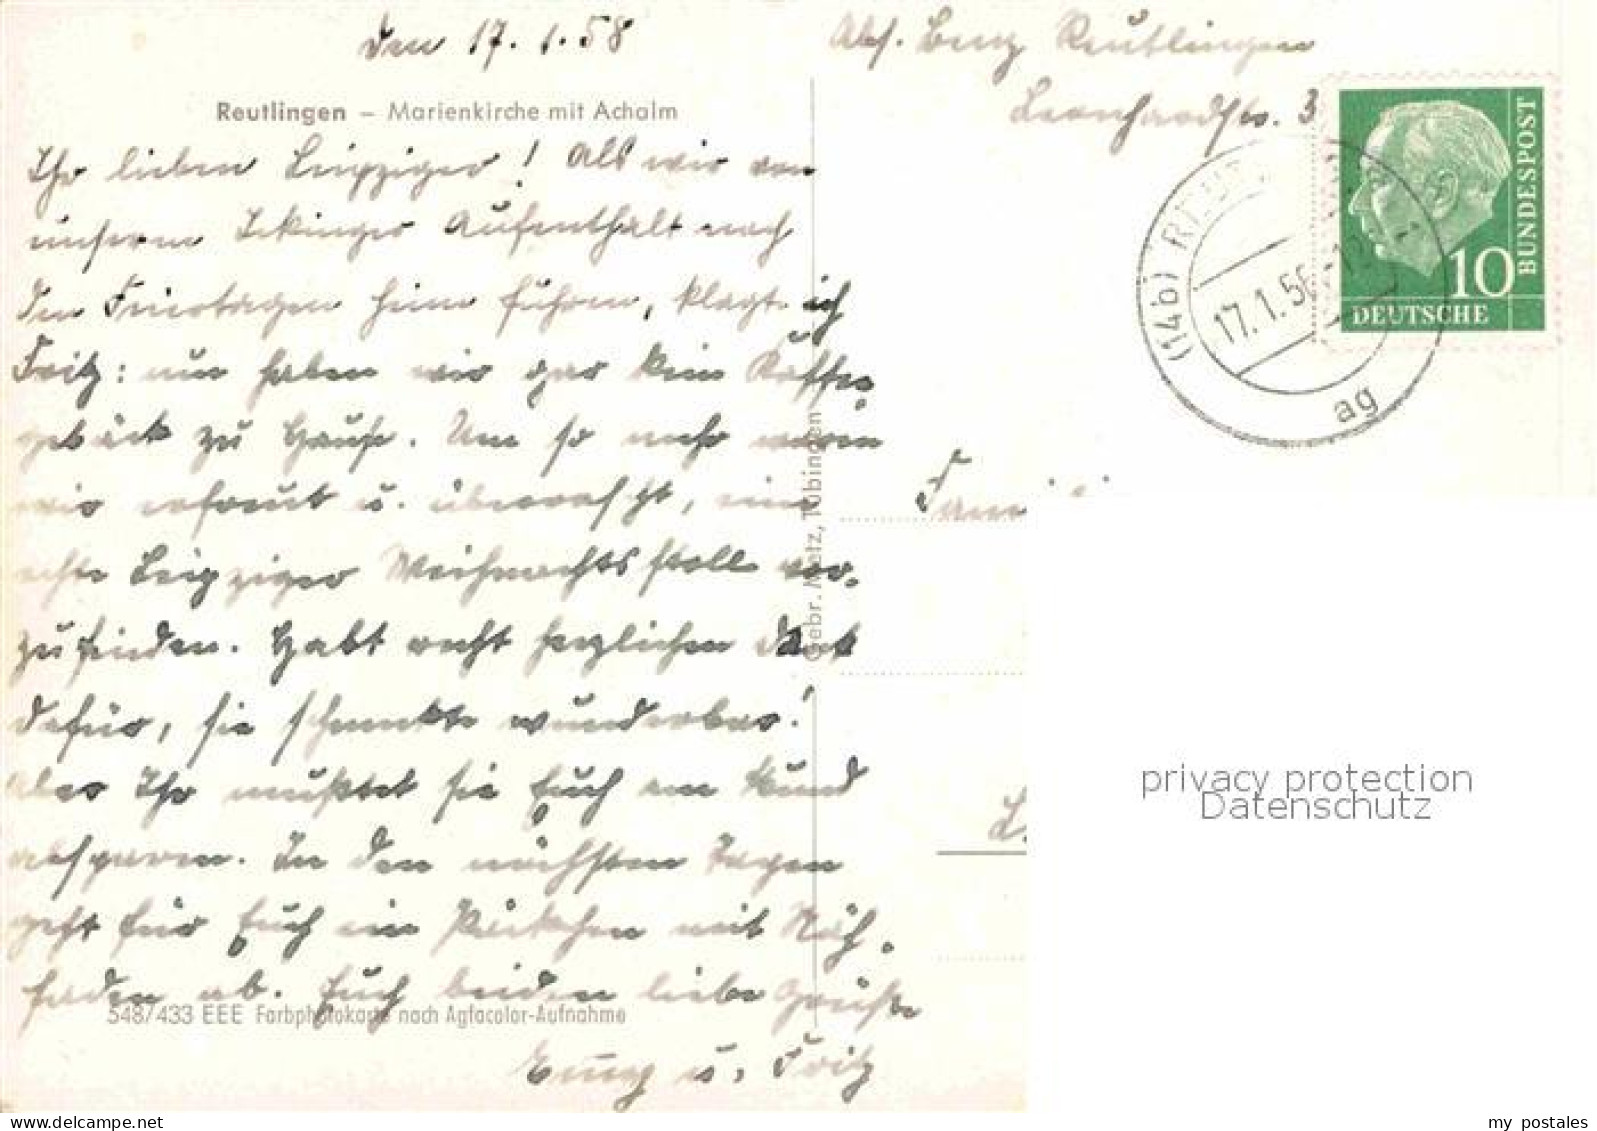 den 17. 1. 58
Abs. Benz Reutlingen
Leonhardstr. 3
Reutlingen – Marienkirche mit Achalm
Ihr lieben Leipziger! Als wir von
unserem Aufenthalt nach
den Feiertagen heim fuhren, klagt ich
Fritz: nun haben wir gar kein Kaffee
gebäck zu Hause. Um so mehr waren
wir erfreut u. überrascht, eine
echte Leipziger Weihnachtsstolle vor-
zufinden. Habt recht herzlichen Dank
dafür, sie schmeckte wunderbar!
Aber Ihr mußtet sie Euch am Mund
absparen. In den nächsten Tagen
geht für Euch ein Päckchen mit Näh-
faden ab. Euch beiden liebe Grüße
u. Fritz
548/433 EEE Farbphotokarte nach Agfacolor-Aufnahme
Gebr. Metz, Tübingen
DEUTSCHE
BUNDESPOST
10
(14b)
17.1.56
ag
privacy protection
Datenschutz
my postales